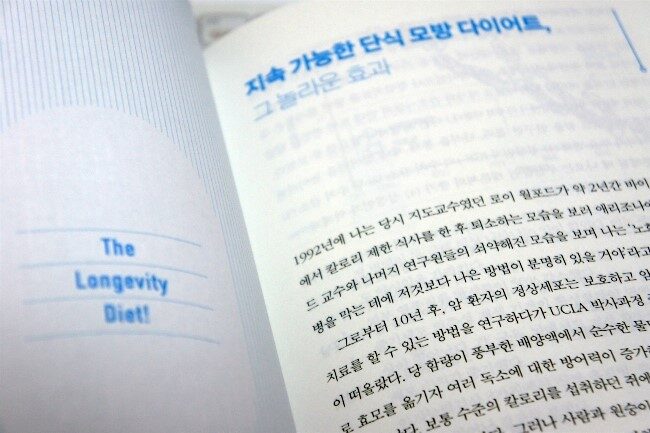 The
Longevity
Diet!
지속 가능한 단식 모방 다이어트,
그 놀라운 효과
1992년에 나는 당시 지도교수였던 로이 월포드가 약 2년간 바이
에서 칼로리 제한 식사를 한 후 퇴소하는 모습을 보러 애리조나
드 교수와 나머지 연구원들의 쇠약해진 모습을 보며 나는 '노
병을 막는 데에 저것보다 나은 방법이 분명히 있을 거야'라고
그로부터 10년 후, 암 환자의 정상세포는 보호하고 암
치료를 할 수 있는 방법을 연구하다가 UCLA 박사과정
이 떠올랐다. 당 함량이 풍부한 배양액에서 순수한 물
로 효모를 옮기자 여러 독소에 대한 방어력이 증가
보통 수준의 칼로리를 섭취하던 쥐에
그러나 사람과 원숭이